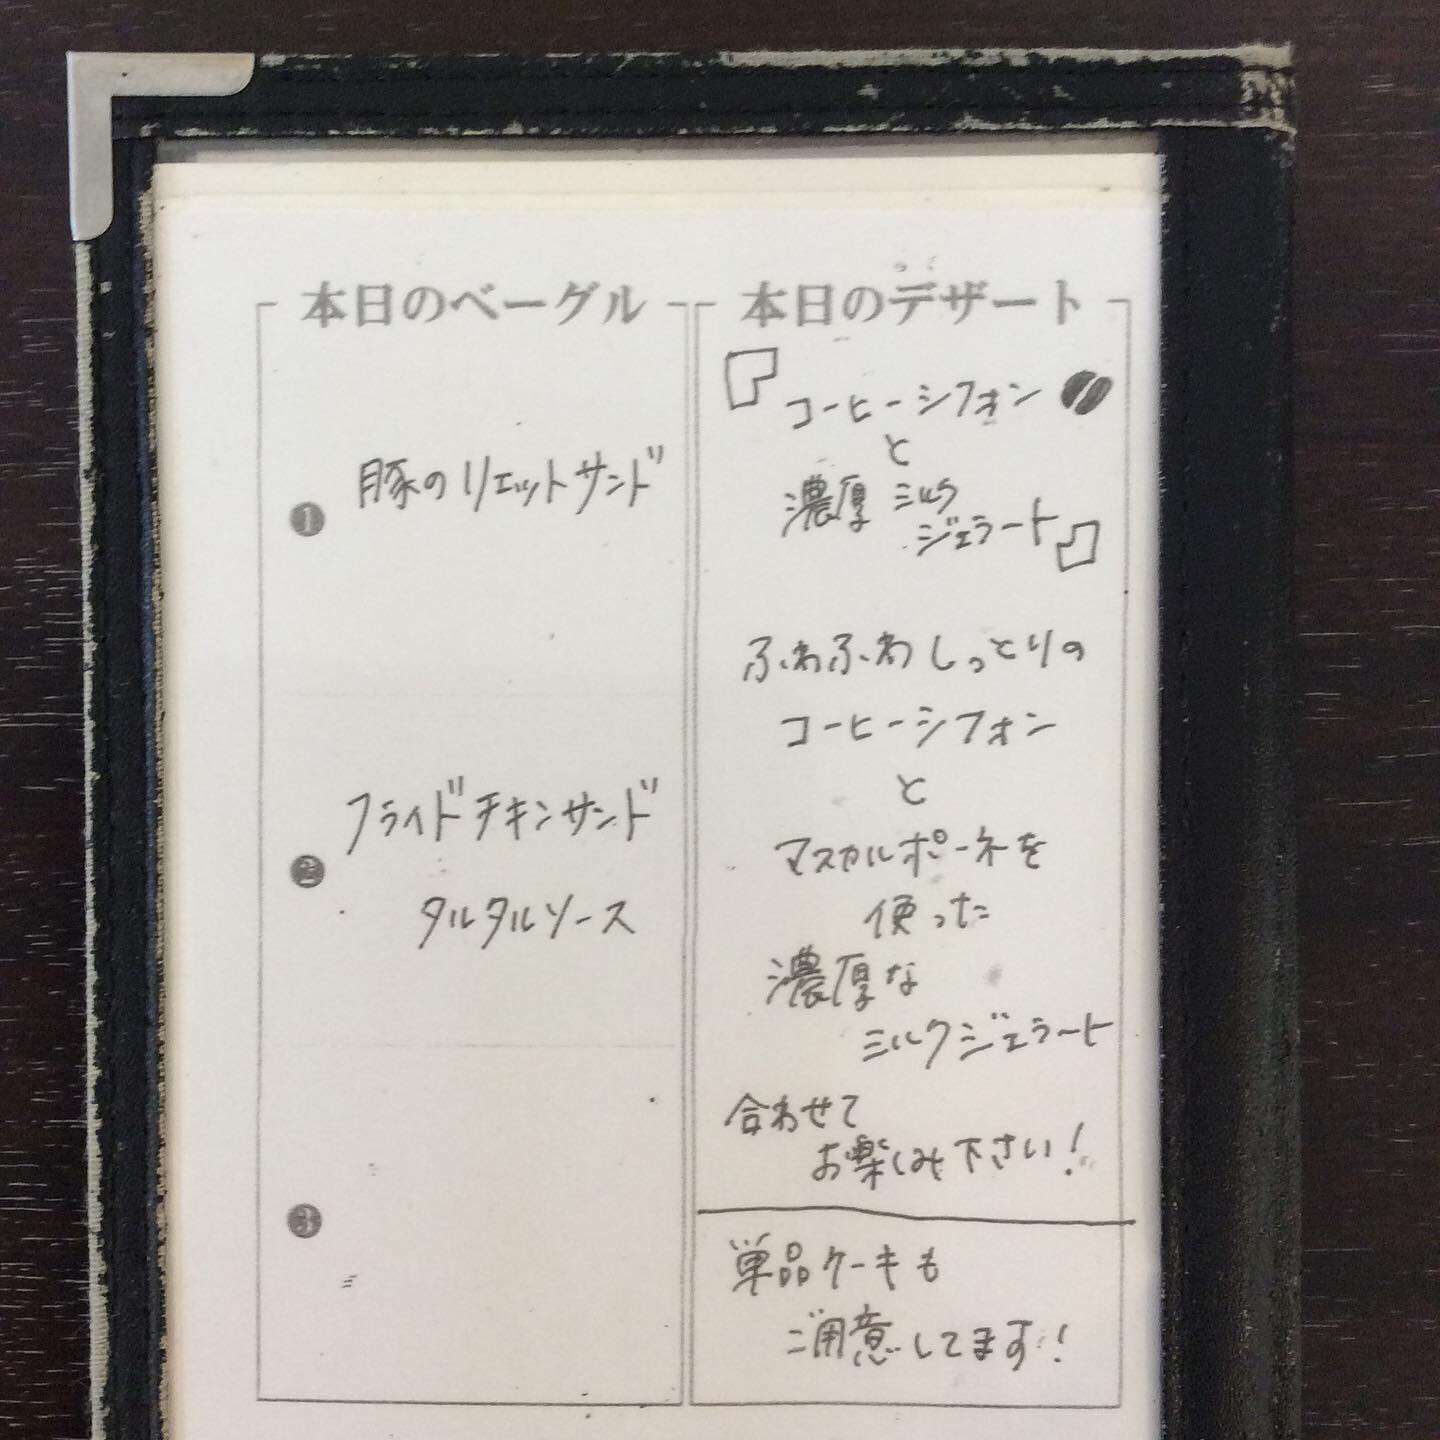 本日のベーグル
❶
豚のリエットサンド
❷
フライドチキンサンド
タルタルソース
❸
本日のデザート
『コーヒーシフォン
と
濃厚ミルク
ジェラート』
ふわふわしっとりの
コーヒーシフォン
と
マスカルポーネを
使った
濃厚な
ミルクジェラート
合わせて
お楽しみ下さい!
単品ケーキも
ご用意してます!